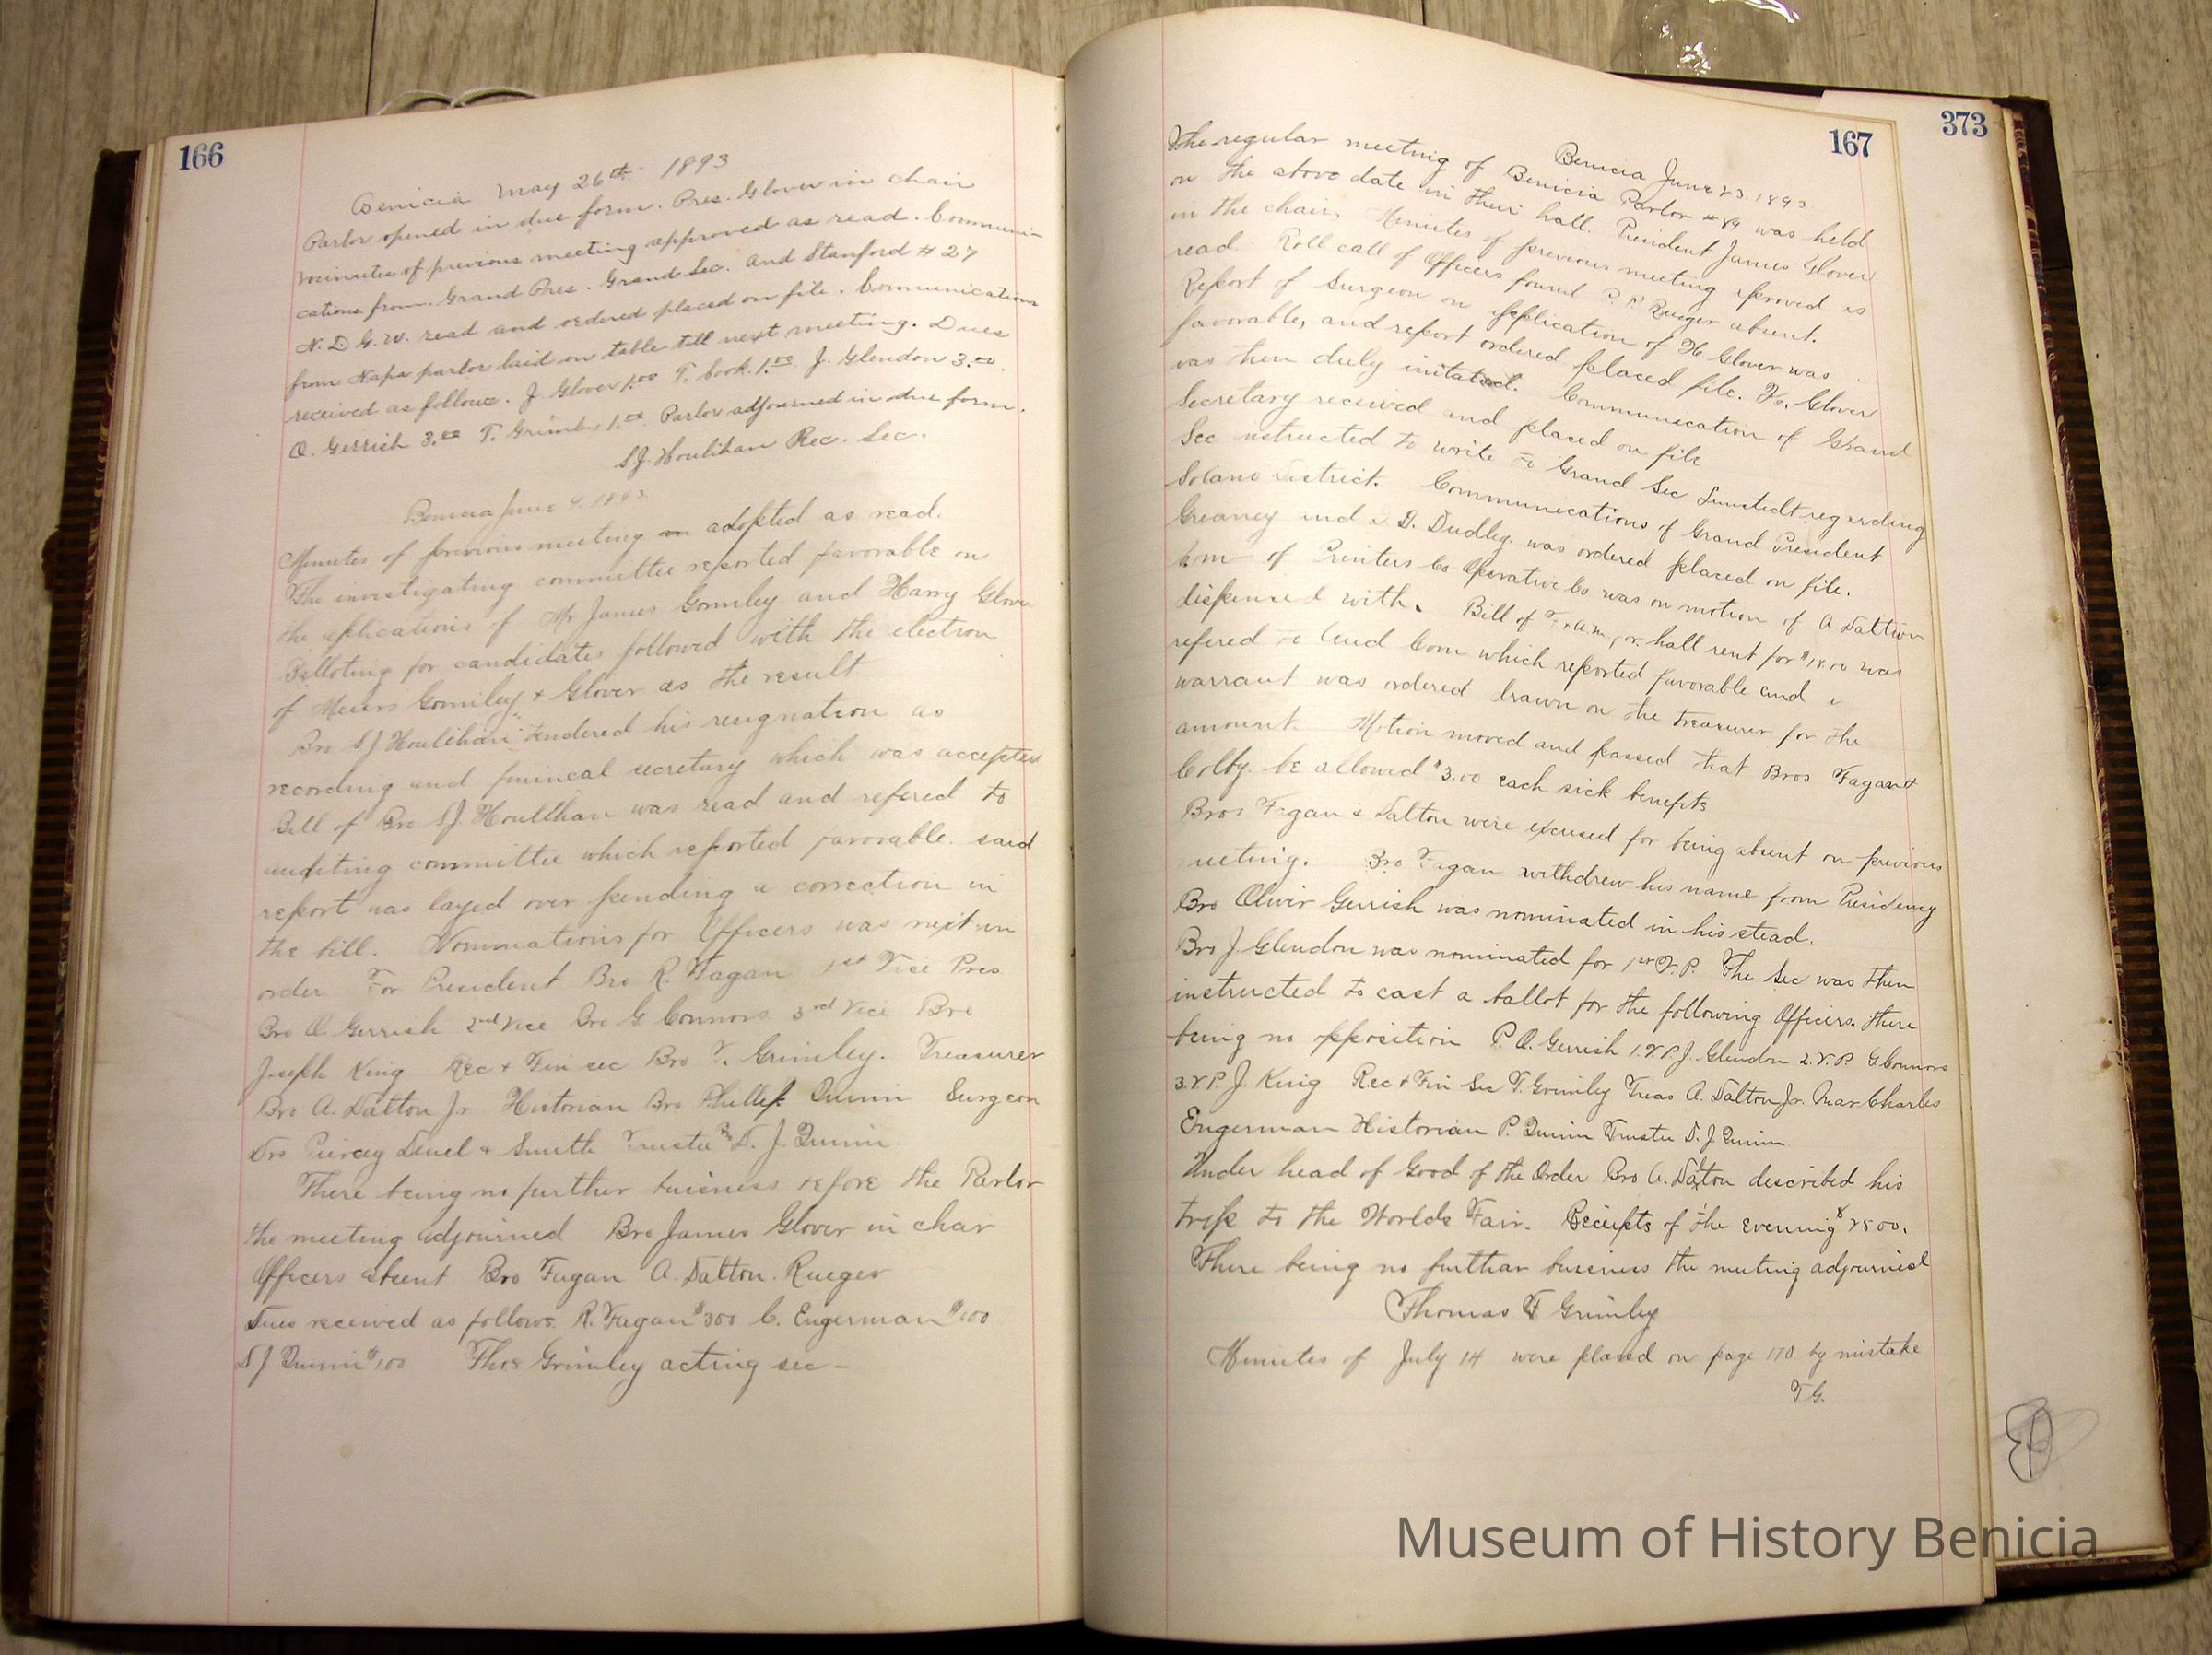 166
Benicia May 26th 1893
Parlor opened in due form. Pres. Glover in chair
minutes of previous meeting approved as read. Communi-
cations from Grand Pres. Grand Sec. and Stanford # 27
N. D G. W. read and ordered placed on file. Communications
from Napa parlor laid on table till next meeting. Dues
received as follows. J. Glover 1.00 T. book. 1.00 J. Glendon 3.00.
O. Gerrish 3.00 T. Grimley 1.00 Parlor adjourned in due form.
S.J. Houlihan Rec. Sec.
Benicia June 9. 1893
Minutes of previous meeting adopted as read.
The investigating committee reported favorable on
the aplications of Mr James Gormley and Harry Glover
Balloting for candidates followed with the election
of Messrs Gormley + Glover as the result
Bro S J Houlihan tendered his resignation as
recording and finincal secretary which was accepted
Bill of Bro S.J. Houlihan was read and refered to
auditing committee which reported favorable. said
report was layed over pending a correction in
the bill. Nominations for Officers was next in
order For President Bro R. Fagan 1st Vice Pres
Bro O. Gerrish 2nd Vice Bro G Connors 3rd Vice Bro
Joseph King Rec + Fin sec Bro T. Grimley. Treasurer
Bro A. Dalton Jr Historian Bro Phillip Quinn Surgeon
Drs Peircey Deuel + Smith Trustee Bro D. J. Quinn.
There being no further buisness before the Parlor
the meeting adjourned Bro James Glover in chair
Officers absent Bro Fagan A. Dalton. Rueger
Dues received as follows R. Fagan $300 C. Engerman $100
D. J. Quinn $100 Thos Grimley acting sec -
373
167
Benicia June 23. 1893.
The regular meeting of Benicia Parlor #89 was held
on the above date in their hall. President James Glover
in the chair, Minutes of previous meeting aproved as
read. Roll call of Officers found P. P. Rueger absent.
Report of Surgeon on application of H Glover was
favorable, and report ordered placed file. H. Glover
was then duly initated. Communication of Grand
Secretary received and placed on file
Sec instructed to write to Grand Sec Lunstedt regarding
Solano District. Communications of Grand President
Greaney and D. Dudley. was ordered placed on file.
Com of Printers Co-Operative Co was on motion of A Daltion
dispensed with. Bill of F. + A.M. for hall rent for $18.00 was
refered to Aud Com which reported favorable and a
warrant was ordered drawn on the treasurer for the
amount. Motion moved and passed that Bros Fagan +
Colby. be allowed $3.00 each sick benefits
Bros Fagan & Dalton were excused for being absent on previous
meeting. Bro Fagan withdrew his name from Presidency
Bro Oliver Gerrish was nominated in his stead.
Bro J. Glendon was nominated for 1st V. P. The Sec was then
instructed to cast a ballot for the following Officers. there
being no opposition P. O. Gerrish 1. V. P. J. Glendon 2. V. P. G. Connors
3. V P. J. King Rec + Fin Sec T. Grimley Treas A. Dalton Jr. Mar Charles
Engerman Historian P. Quinn Trustee D. J. Quinn
Under head of Good of the Order Bro A. Dalton described his
trip to the Worlds Fair. Receipts of the evening $ 25 00.
There being no further buisness the meeting adjourned
Thomas F Grimley
Minutes of July 14 were placed on page 170 by mistake
T G.
Museum of History Benicia